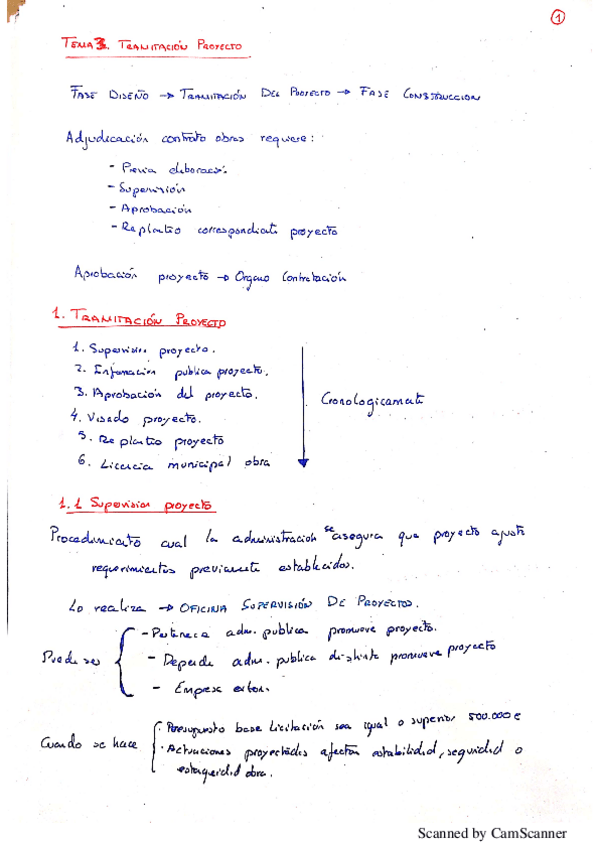 1
TEMA 3. TRAMITACIÓN PROYECTO
FASE DISEÑO → TRAMITACIÓN DEL PROYECTO → FASE CONSTRUCCION
Adjudicación contrato obras requiere:
- Previa elaboración.
- Supervisión
- Aprobación
- Replanteo correspondiente proyecto
Aprobación proyecto → Organo Contratación
1. TRAMITACIÓN PROYECTO
1. Supervision proyecto.
2. Información publica proyecto.
3. Aprobación del proyecto.
4. Visado proyecto.
5. Replanteo proyecto
6. Licencia municipal obra
Cronologicamente
1.1 Supervision proyecto
Procedimiento cual la administracion se asegura que proyecto ajuste
requerimientos previamente establecidos.
Lo realiza → OFICINA SUPERVISIÓN DE PROYECTOS.
Puede ser
- Pertenezca adm. publica promueve proyecto.
- Depende adm. publica distinta promueve proyecto
- Empresa extern.
Cuando se hace
· Presupuesto base licitación sea igual o superior 500.000 €
· Actuaciones proyectadas afectan estabilidad, seguridad o
estanqueidad obra.
Scanned by CamScanner